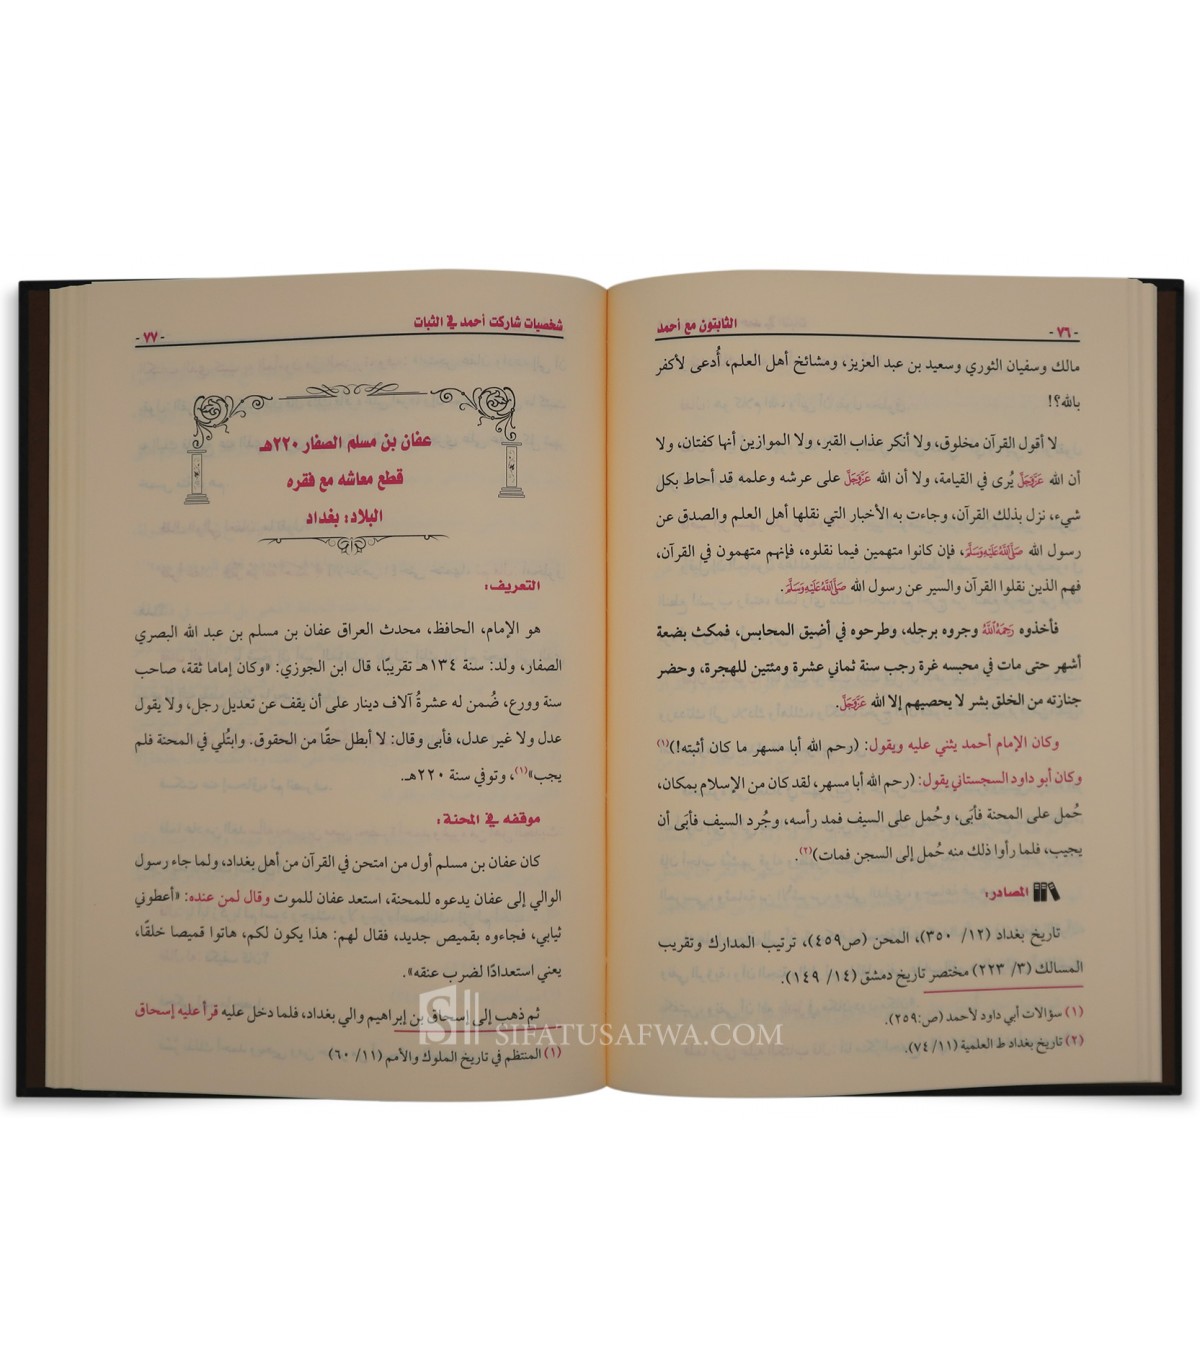 - ٧٦ -
الثابتون مع أحمد
مالك وسفيان الثوري وسعيد بن عبد العزيز، ومشائخ أهل العلم، أُدعى لأكفر
بالله؟!
لا أقول القرآن مخلوق، ولا أنكر عذاب القبر، ولا الموازين أنها كفتان، ولا
أن الله عَزَّوَجَلَّ يُرى في القيامة، ولا أن الله عَزَّوَجَلَّ على عرشه وعلمه قد أحاط بكل
شيء، نزل بذلك القرآن، وجاءت به الأخبار التي نقلها أهل العلم والصدق عن
رسول الله صَلَّى اللَّهُ عَلَيْهِ وَسَلَّمَ، فإن كانوا متهمين فيما نقلوه، فإنهم متهمون في القرآن،
فهم الذين نقلوا القرآن والسير عن رسول الله صَلَّى اللَّهُ عَلَيْهِ وَسَلَّمَ.
فأخذوه رَحِمَهُ اللَّهُ وجروه برجله، وطرحوه في أضيق المحابس، فمكث بضعة
أشهر حتى مات في محبسه غرة رجب سنة ثماني عشرة ومئتين للهجرة، وحضر
جنازته من الخلق بشر لا يحصيهم إلا الله عَزَّوَجَلَّ.
وكان الإمام أحمد يثني عليه ويقول: (رحم الله أبا مسهر ما كان أثبته!)(١)
وكان أبو داود السجستاني يقول: (رحم الله أبا مسهر، لقد كان من الإسلام بمكان،
حُمل على المحنة فأبَى، وحُمل على السيف فمد رأسه، وجُرد السيف فأبَى أن
يجيب، فلما رأوا ذلك منه حُمل إلى السجن فمات)(٢).
المصادر:
تاريخ بغداد (١٢/ ٣٥٠)، المحن (ص٤٥٩)، ترتيب المدارك وتقريب
المسالك (٣/ ٢٢٣) مختصر تاريخ دمشق (١٤/ ١٤٩).
(١) سؤالات أبي داود لأحمد (ص:٢٥٩).
(٢) تاريخ بغداد ط العلمية (١١/ ٧٤).
شخصيات شاركت أحمد في الثبات
- ٧٧ -
عفان بن مسلم الصفار ٢٢٠هـ
قطع معاشه مع فقره
البلاد: بغداد
التعريف:
هو الإمام، الحافظ، محدث العراق عفان بن مسلم بن عبد الله البصري
الصفار، ولد: سنة ١٣٤هـ تقريبًا، قال ابن الجوزي: «وكان إماما ثقة، صاحب
سنة وورع، ضُمن له عشرةُ آلاف دينار على أن يقف عن تعديل رجل، ولا يقول
عدل ولا غير عدل، فأبى وقال: لا أبطل حقًا من الحقوق. وابتُلي في المحنة فلم
يجب»(١)، وتوفي سنة ٢٢٠هـ.
موقفه في المحنة:
كان عفان بن مسلم أول من امتحن في القرآن من أهل بغداد، ولما جاء رسول
الوالي إلى عفان يدعوه للمحنة، استعد عفان للموت وقال لمن عنده: «أعطوني
ثيابي، فجاءوه بقميص جديد، فقال لهم: هذا يكون لكم، هاتوا قميصا خلقًا،
يعني استعدادًا لضرب عنقه».
ثم ذهب إلى إسحاق بن إبراهيم والي بغداد، فلما دخل عليه قرأ عليه إسحاق
(١) المنتظم في تاريخ الملوك والأمم (١١/ ٦٠)
SIFATUSAFWA.COM